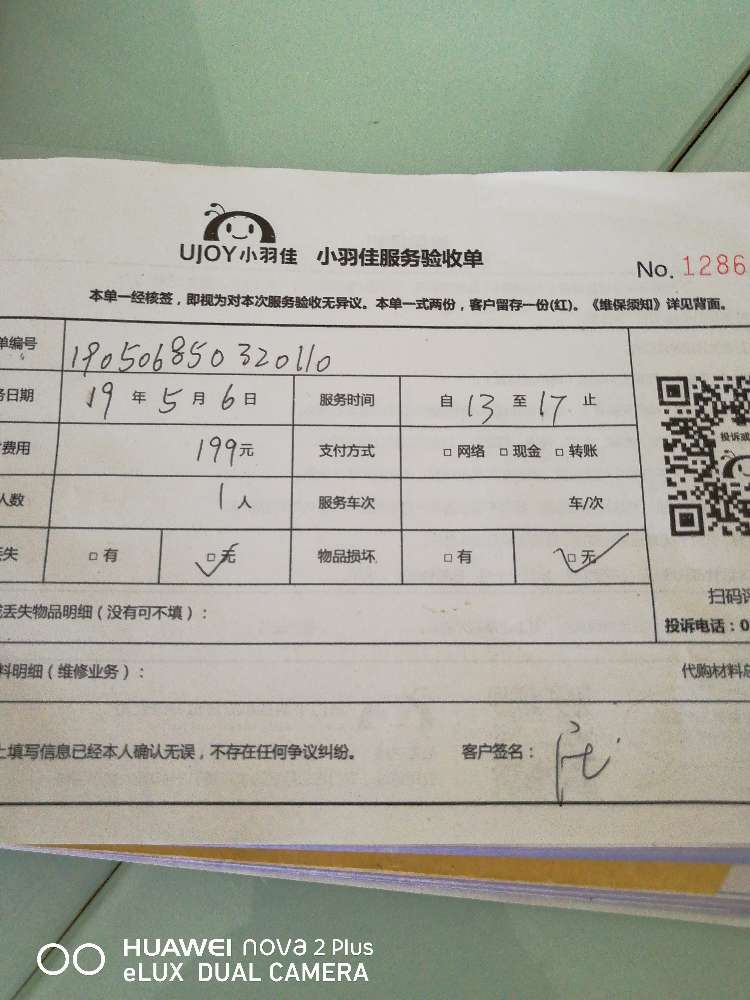 UJOY小羽佳 小羽佳服务验收单
No. 1286
本单一经核签，即视为对本次服务验收无异议。本单一式两份，客户留存一份(红)。《维保须知》详见背面。
单编号 190506850320110
务日期 19 年 5 月 6 日 服务时间 自 13 至 17 止
费用 199元 支付方式 □ 网络 □ 现金 □ 转账
人数 1 人 服务车次 车/次
丢失 □ 有 □ 无 物品损坏 □ 有 □ 无
投诉或
丢失物品明细（没有可不填）：
扫码评
投诉电话：0
料明细（维修业务）：
代购材料总
上填写信息已经本人确认无误，不存在任何争议纠纷。 客户签名：
HUAWEI nova 2 Plus
eLUX DUAL CAMERA